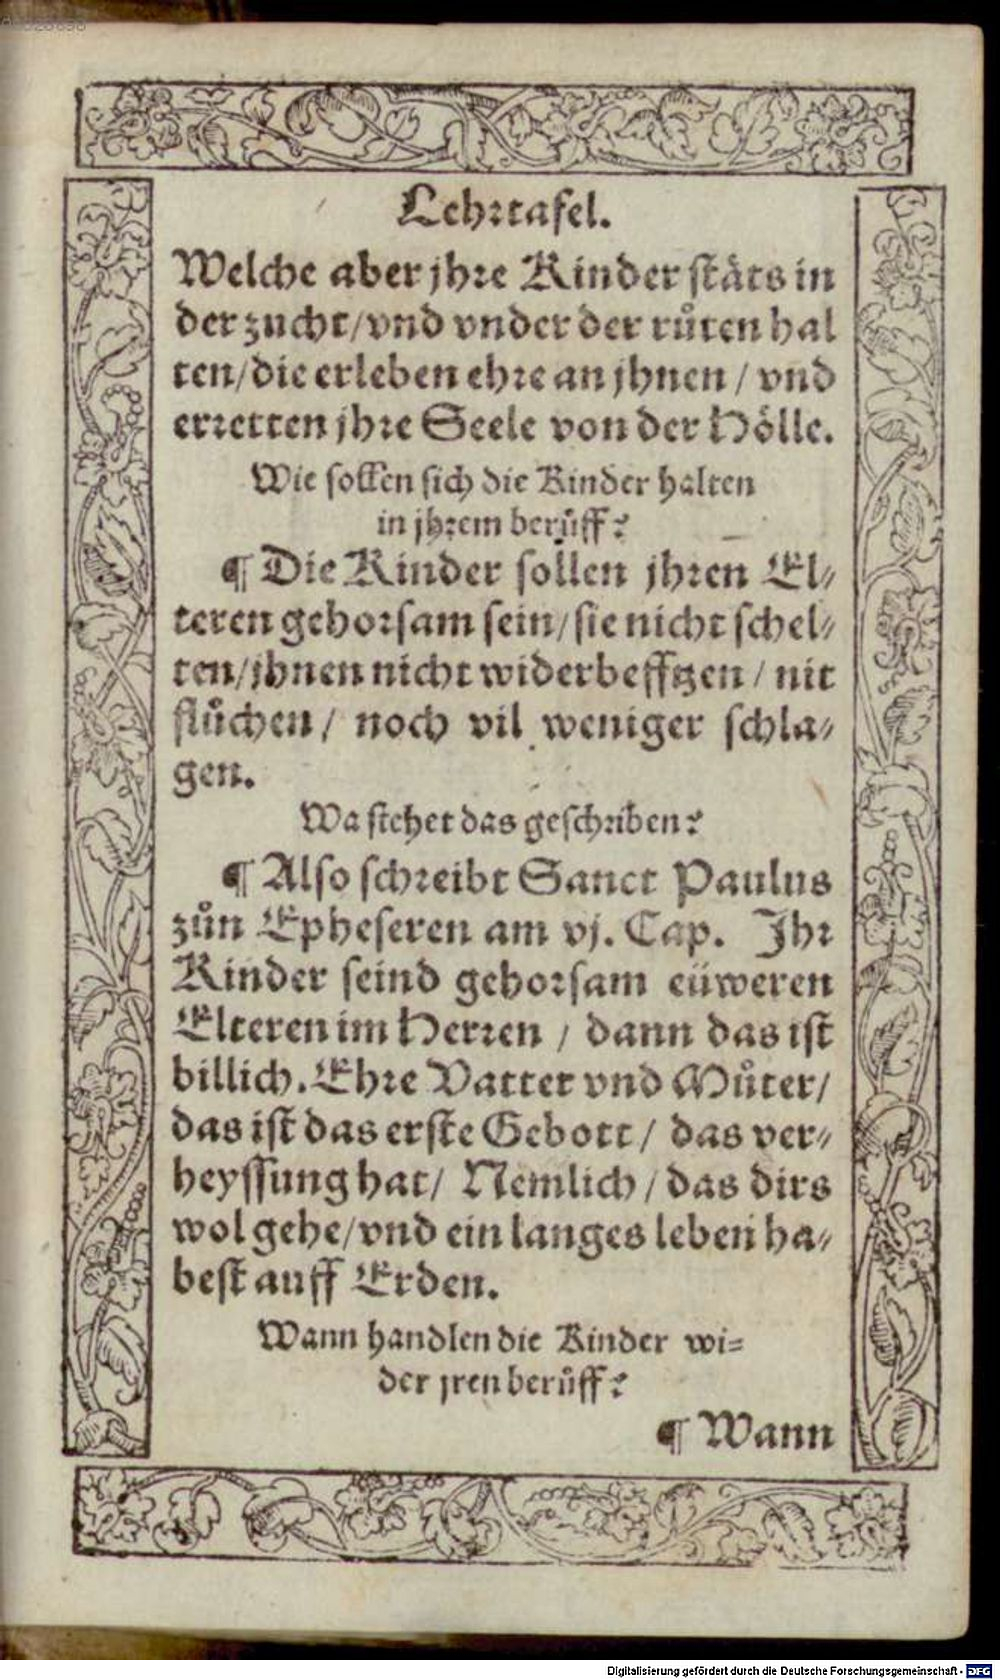 Lehrtafel.
Welche aber jhre Kinder stäts in
der zucht/vnd vnder der růten hal
ten/die erleben ehre an jhnen / vnd
erretten jhre Seele von der Hölle.
Wie sollen sich die Kinder halten
in jhrem berůff?
¶ Die Kinder sollen jhren El⸗
teren gehorsam sein/sie nicht schel⸗
ten/jhnen nicht widerbefftzen / nit
flůchen / noch vil weniger schla⸗
gen.
Wa stehet das geschriben?
¶ Also schreibt Sanct Paulus
zůn Epheseren am vj. Cap. Jhr
Kinder seind gehorsam eüweren
Elteren im Herren / dann das ist
billich. Ehre Vatter vnd Můter/
das ist das erste Gebott / das ver⸗
heyssung hat/ Nemlich / das dirs
wol gehe/vnd ein langes leben ha⸗
best auff Erden.
Wann handlen die Kinder wi⸗
der jren berůff?
¶ Wann
Digitalisierung gefördert durch die Deutsche Forschungsgemeinschaft - DFG